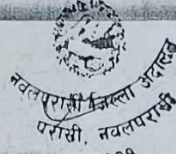 नवलपरासी जिल्ला अदालत
परासी, नवलपरासी